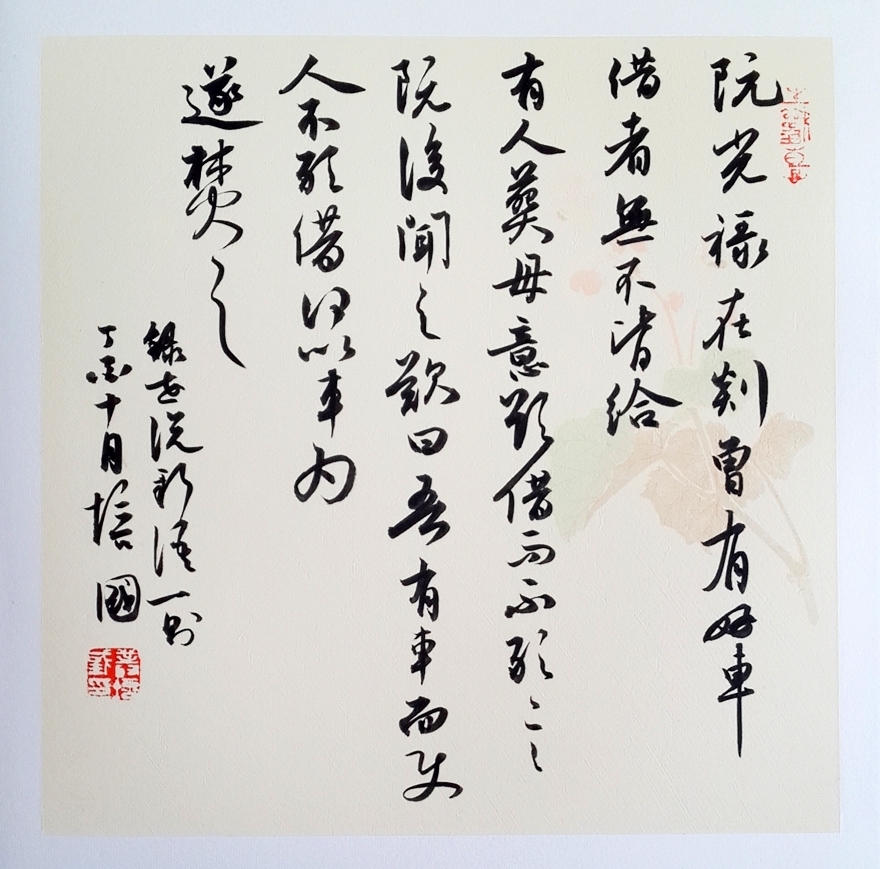 阮光祿在剡曾有好車
借者無不皆給
有人葬母意欲借而不敢言
阮後聞之歎曰吾有車而使
人不敢借何以車為
遂焚之
錄世說新語一則
丁酉十月培國